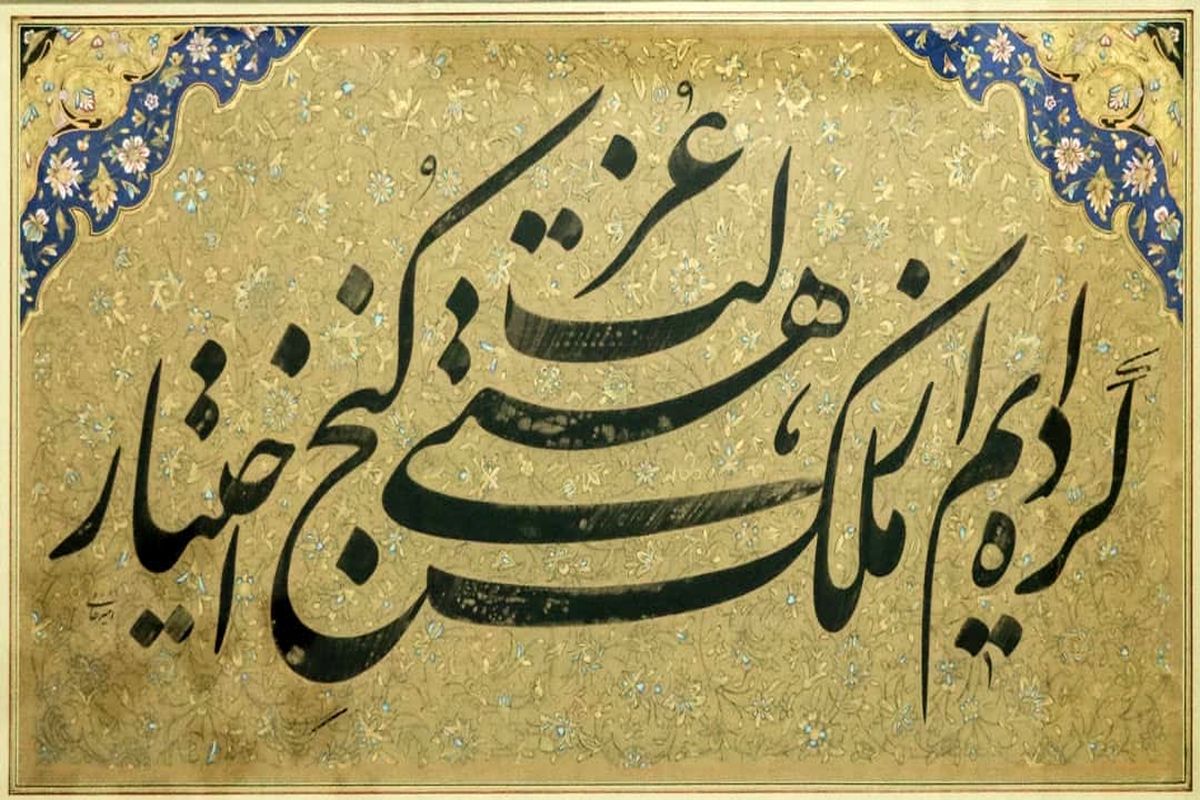 کرده ایم از ملک هستی کنج عزلت اختیار
امیرخانی